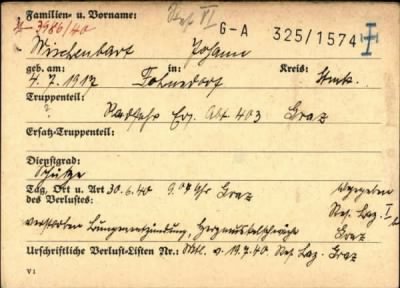 Familien- u. Vorname: Ref VI
3986/40 G-A 325/1574 I
Wischenbart Johann
geb. am: in: Kreis:
4.7.1917 Stmk.
Truppenteil:
? Radfahr Ers. Abt. 403 Graz
Ersatz-Truppenteil:
Dienstgrad:
Schütze
Tag, Ort u. Art 30.6.40 Uhr Graz
des Verlustes: Res. Laz. I
verstorben Lungenentzündung, Herzmuskelschwäche Graz
Urschriftliche Verlust-Listen Nr.: v. 19.7.40 Res. Laz. Graz
V 1